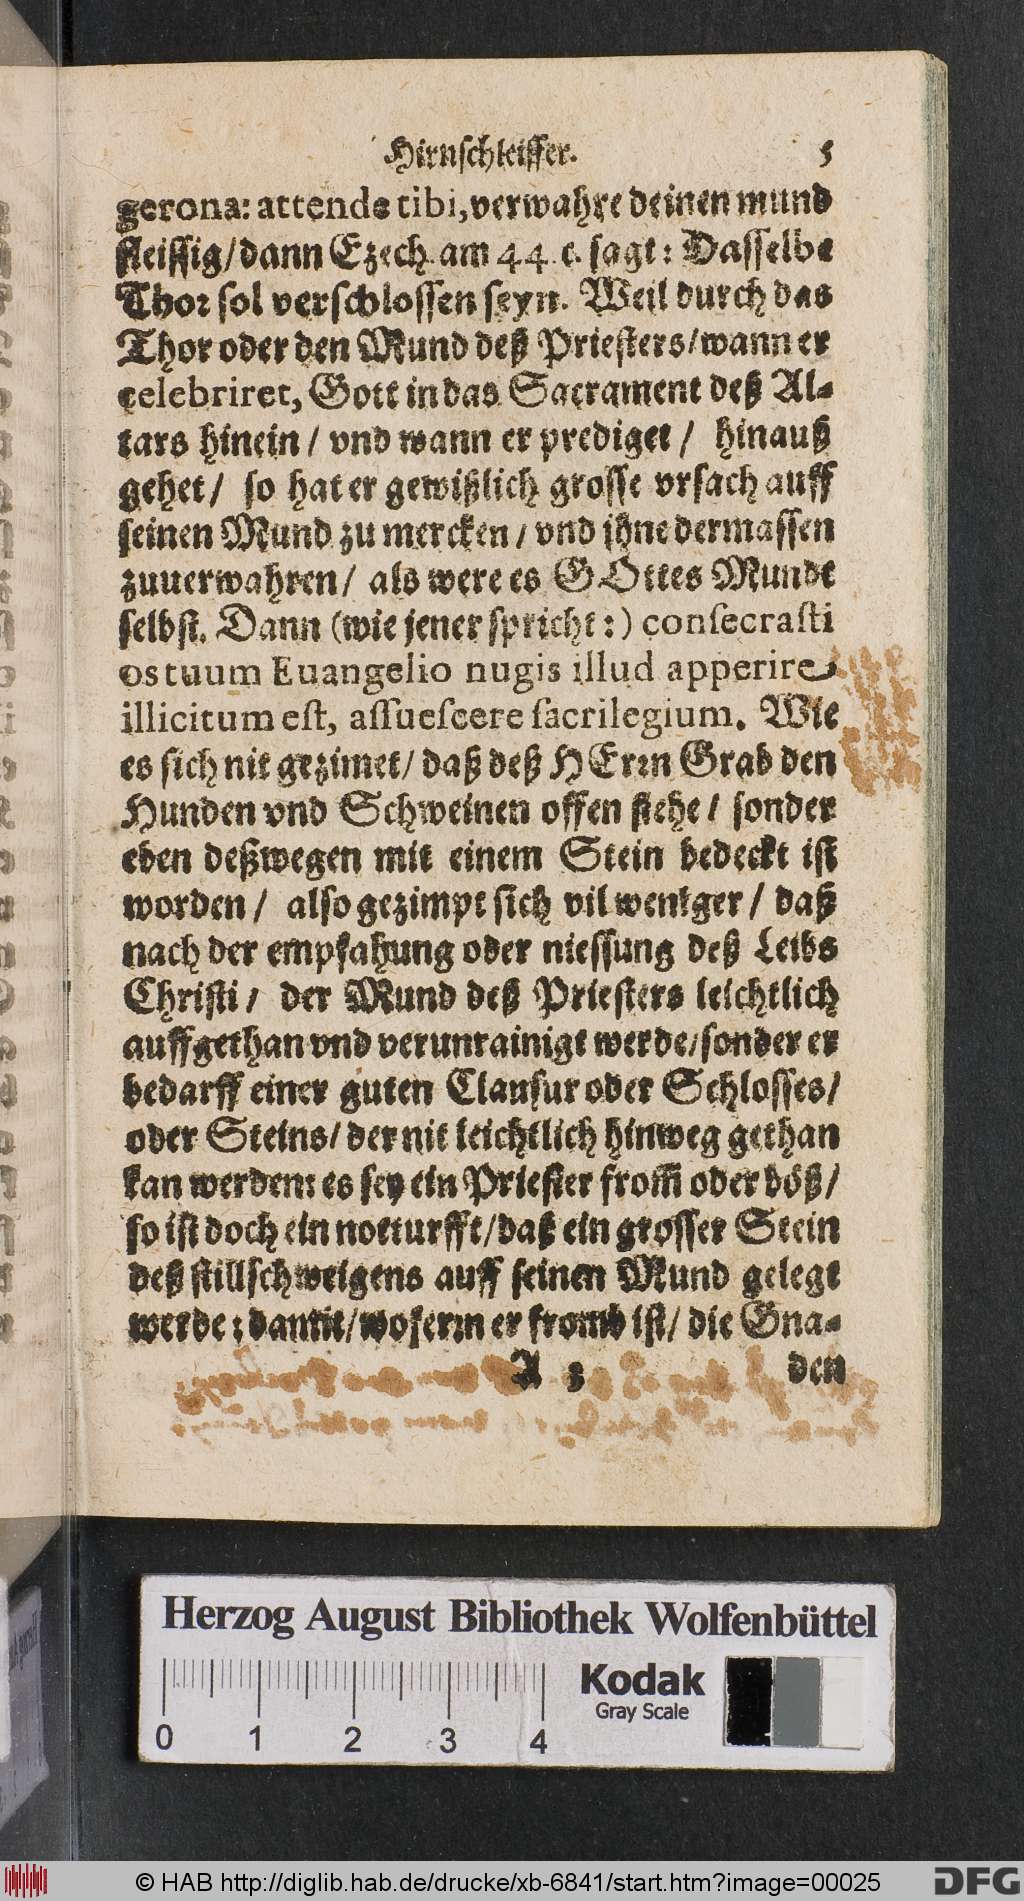 Hirnschleiffer. 5
gerona: attende tibi, verwahre deinen mund
fleissig/ dann Ezech. am 44 c. sagt: Dasselbe
Thor sol verschlossen seyn. Weil durch das
Thor oder den Mund deß Priesters/ wann er
celebriret, Gott in das Sacrament deß Al-
tars hinein/ vnd wann er prediget/ hinauß
gehet/ so hat er gewißlich grosse vrsach auff
seinen Mund zu mercken/ vnd ihne dermassen
zuuerwahren/ als were es GOttes Munde
selbst. Dann (wie jener spricht:) consecrasti
os tuum Euangelio nugis illud apperire
illicitum est, assuescere sacrilegium. Wie
es sich nit gezimet/ daß deß HErrn Grab den
Hunden vnd Schweinen offen stehe/ sonder
eben deßwegen mit einem Stein bedeckt ist
worden/ also gezimpt sich vil weniger/ daß
nach der empfahung oder niessung deß Leibs
Christi/ der Mund deß Priesters leichtlich
auffgethan vnd verunrainigt werde/ sonder er
bedarff einer guten Clausur oder Schlosses/
oder Steins/ der nit leichtlich hinweg gethan
kan werden: es sey ein Priester from̃ oder böß/
so ist doch ein notturfft/ daß ein grosser Stein
deß stillschweigens auff seinen Mund gelegt
werde; damit/ woferrn er fromb ist/ die Gna-
A 3 den
Herzog August Bibliothek Wolfenbüttel
Kodak
Gray Scale
0 1 2 3 4
© HAB http://diglib.hab.de/drucke/xb-6841/start.htm?image=00025
DFG